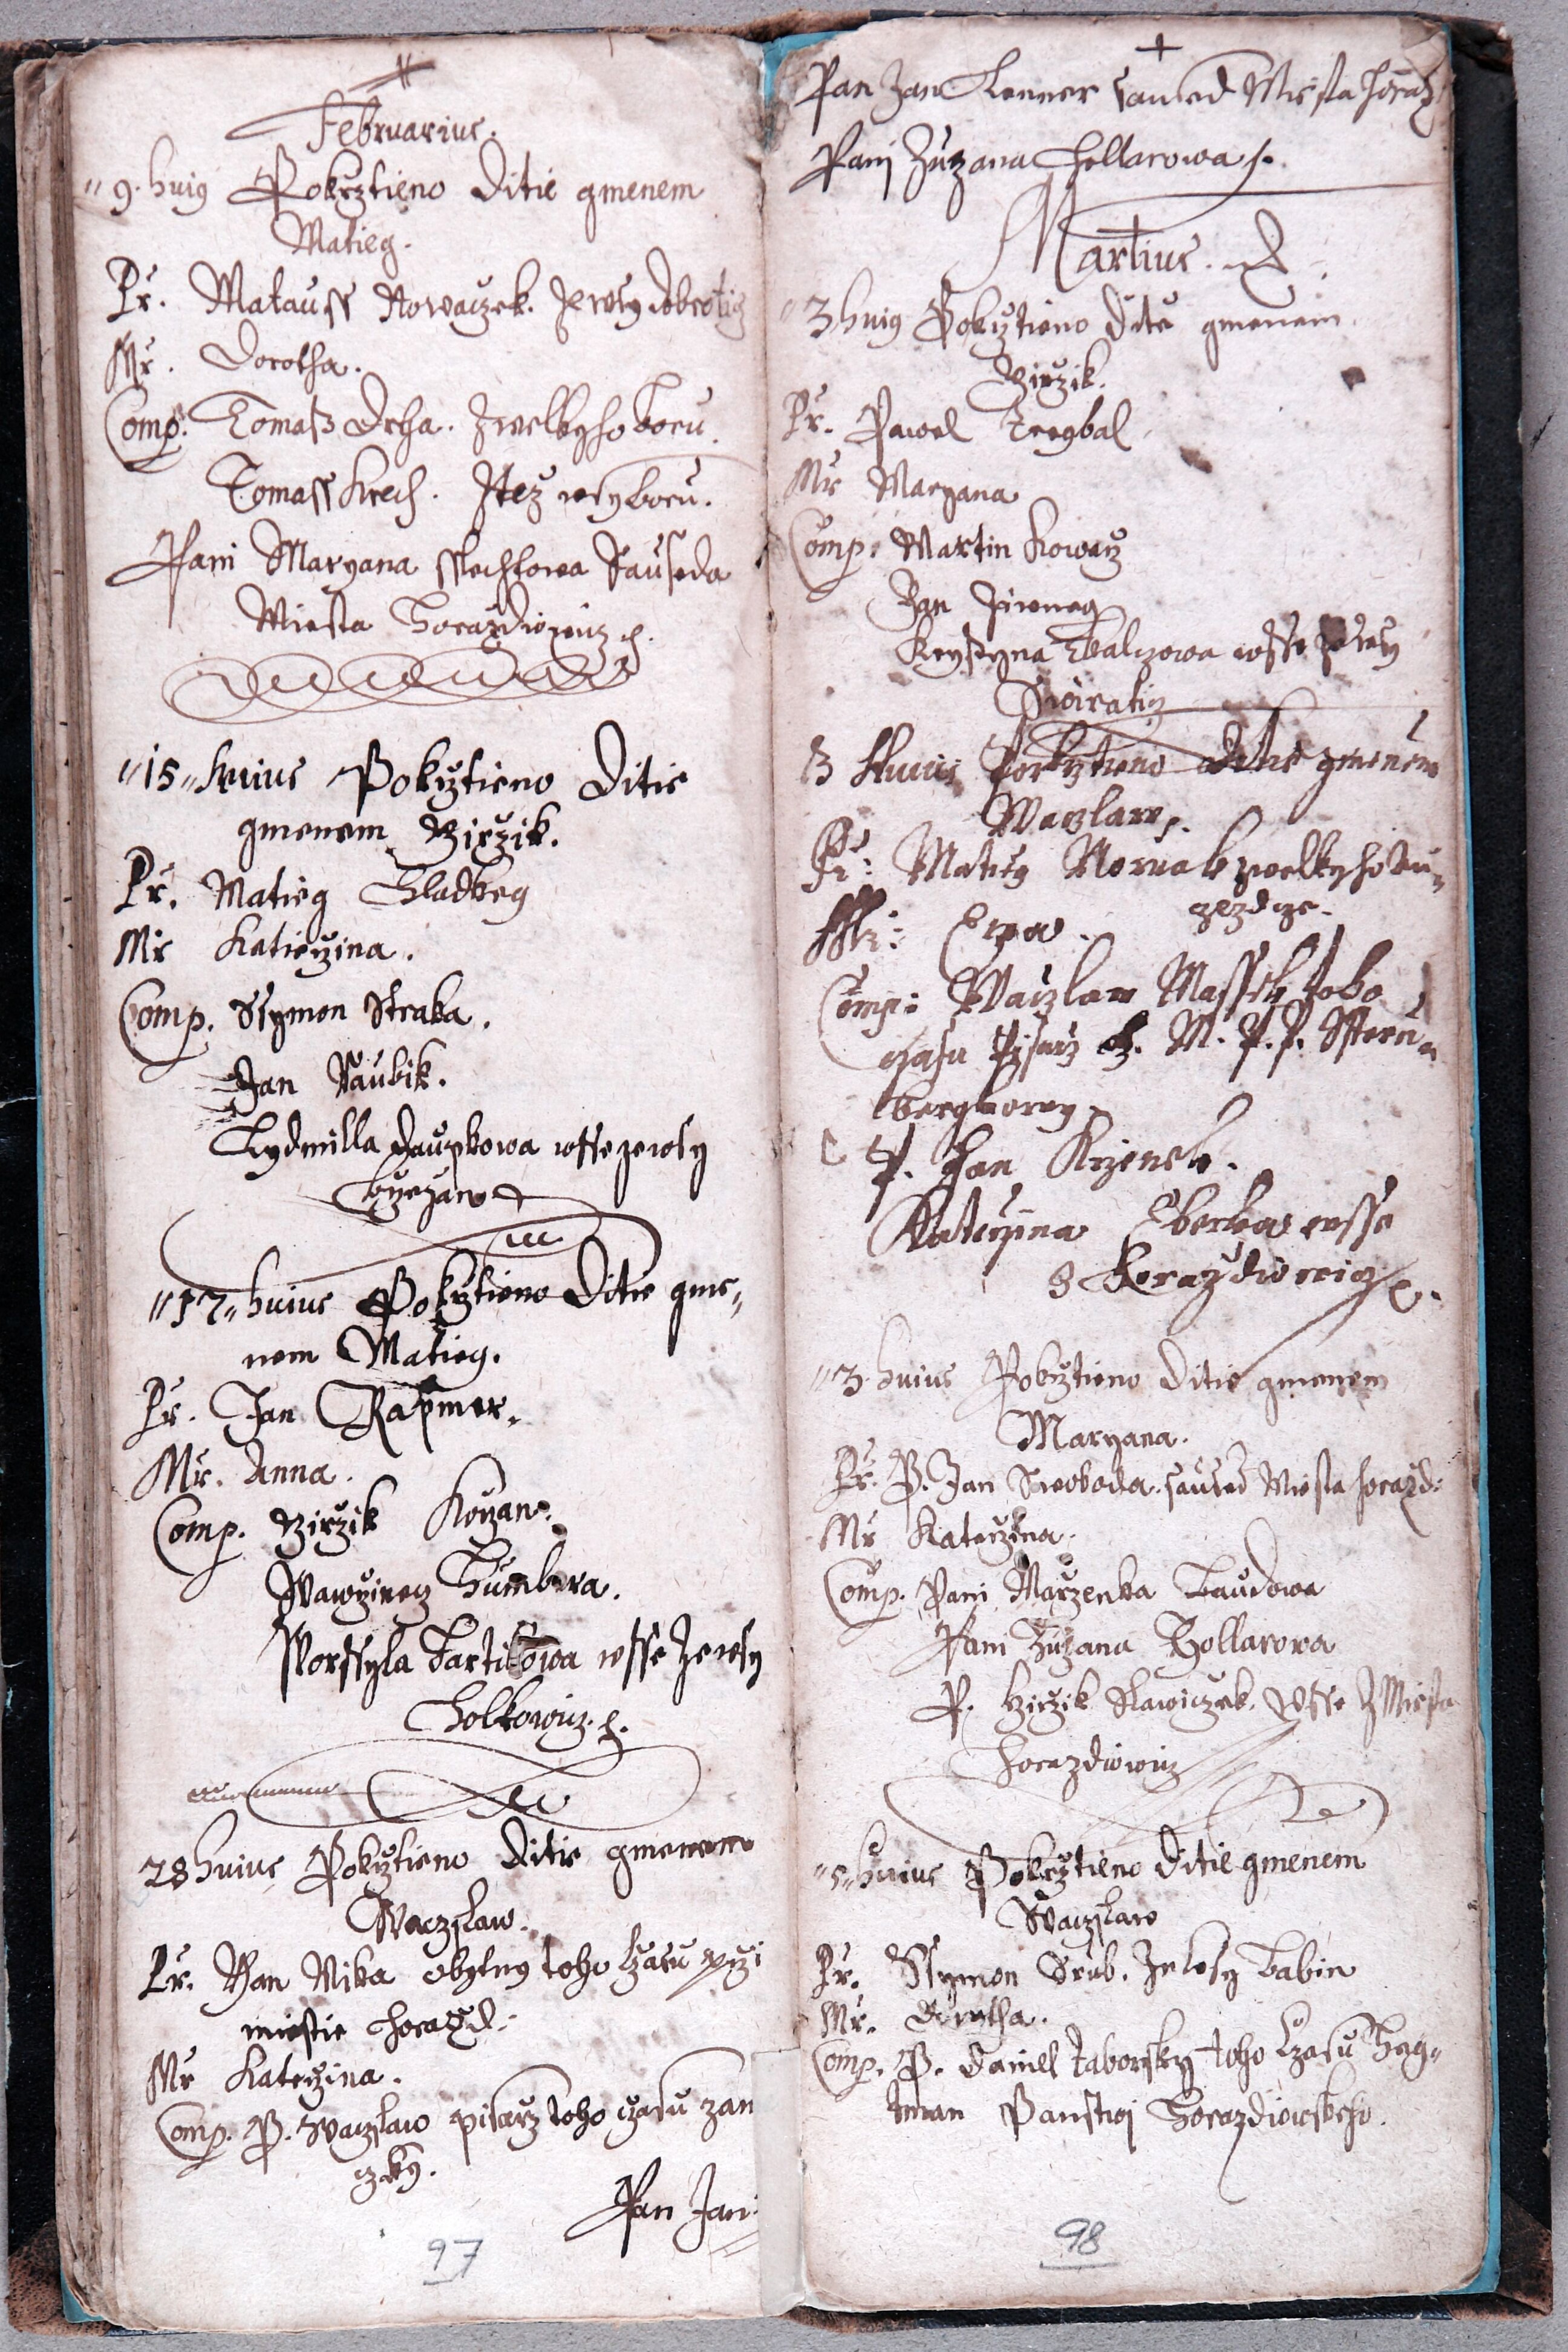 Februarius.
9. huig Pokrztieno Ditie gmenem
Matieg.
Pr. Matauss Nowaczek. Ze wsy dobrotig
Mr. Dorotha.
Comp. Tomaß Drha. Z welkyho boru.
Tomass Krch. Z tez wsy boru.
Pani Maryana Sauseda
Miesta Horazdiowicz
15 huius Pokrztieno Ditie
gmenem Girzik.
Pr. Matieg Hladkeg
Mr Katierzina.
Comp. Ssymon Straka.
Jan Kaubik.
Lydmilla wsse ze wsy
17 huius Pokrztieno Ditie gme,,
nem Matieg.
Pr. Jan
Mr. Anna.
Comp. Girzik Kozan
Wawrzinecz Humbera.
Worssyla wsse Ze wsy
Holkowicz.
28 huius Pokrztieno Ditie gmenem
Waczslaw.
Pr. Jan Mika obytny toho czasu przi
miestie Horazd:
Mr Katerzina.
Comp. P. Waczslaw pisarz toho czasu zam
czky.
Pan Jan:
97
Pan Jan Lenner saused Miesta Horaz
Pani Zuzana Hollarowa
Martius.
3 huig Pokrztieno Ditie gmenem
Girzik.
Pr. Pawel
Mr Maryana
Comp. Martin Kowarz
Jan
Krystyna wsse ze wsy
3 Huius Porkrztieno ditie gmenem
Waczlaw.
Pr: Matieg Nowak z welkyho bu,,
gezdcze.
Mr: Ewa.
Comp: Waczlaw Massek toho
czasu Pisarz M. P. P. Sstern,,
bergkowey
P. Jan Krzenek.
Katerzina wsse
z Horazdiowicz
3 huius Pokrztieno Ditie gmenem
Maryana.
Pr. P. Jan Swoboda. saused Miesta Horazd:
Mr Katerzina.
Comp. Pani Marzenka Laudowa
Pani Zuzana Hollarowa
P. Girzik Slawiczek. Wsse Z Miesta
Horazdiowicz
5 huius Pokrztieno Ditie gmenem
Waczslaw
Pr. Ssymon Srub. Ze wsy Babin
Mr. Dorotha.
Comp. P. Daniel Taborsky toho Czasu Heg,,
tman Panstwi Horazdiowskeho.
98